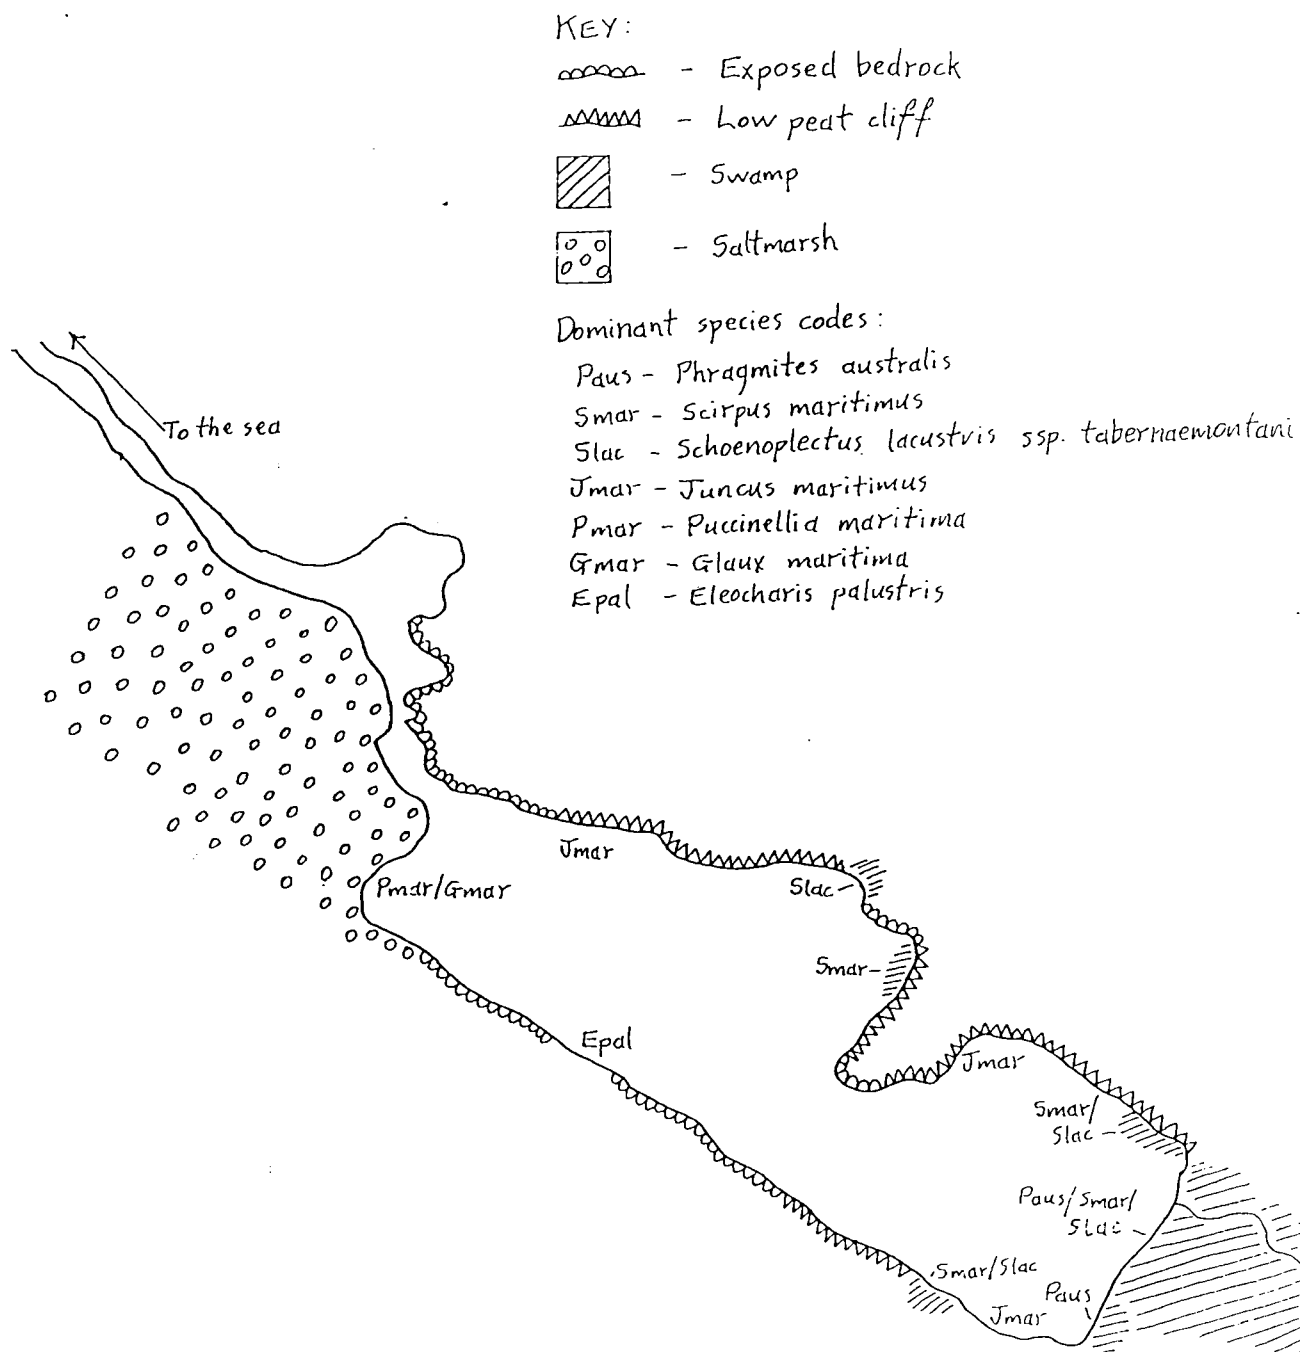 KEY:
- Exposed bedrock
- Low peat cliff
- Swamp
- Saltmarsh
Dominant species codes:
Paus - Phragmites australis
Smar - Scirpus maritimus
Slac - Schoenoplectus lacustris ssp. tabernaemontani
Jmar - Juncus maritimus
Pmar - Puccinellia maritima
Gmar - Glaux maritima
Epal - Eleocharis palustris
To the sea
Jmar
Pmar/Gmar
Slac
Smar
Epal
Jmar
Smar/
Slac
Paus/Smar/
Slac
Smar/Slac
Paus
Jmar